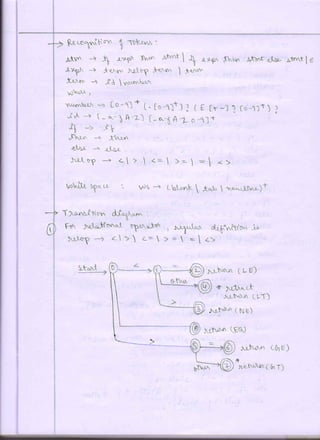 → Recognition of Tokens :
stm → if expr then stmt | if expr then stmt else stmt | ε
expr → term relop term | term
term → id | number
where,
number → [0-9]+ (.[0-9]+)? (E [+-]? [0-9]+)?
id → [_a-zA-Z] [_a-zA-Z0-9]+
if → if
then → then
else → else
relop → < | > | <= | >= | = | <>
White space : ws → (blank | tab | newline)+
→ Transition diagram :
① For relational operator , regular definition is
relop → < | > | <= | >= | = | <>
Start 0 < 1 = 2 return (LE)
other 4 * return (LT)
> 3 return (NE)
return (EQ)
= 6 return (GE)
other * return (GT)